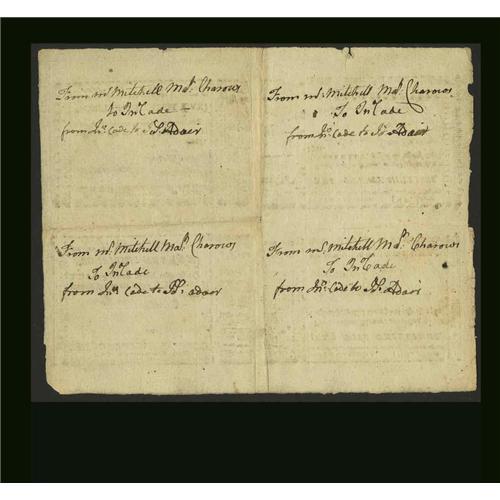 From Mr. Mitchell Maj. Charows
To Jn. Cade
from Jn. Cade to Js. Adair
From Mr. Mitchell Maj. Charows
To Jn. Cade
from Jn. Cade to Js. Adair
From Mr. Mitchell Maj. Charows
To Jn. Cade
from Jn. Cade to Js. adair
From Mr. Mitchell Maj. Charows
To Jn. Cade
from Jn. Cade to Js. Adair